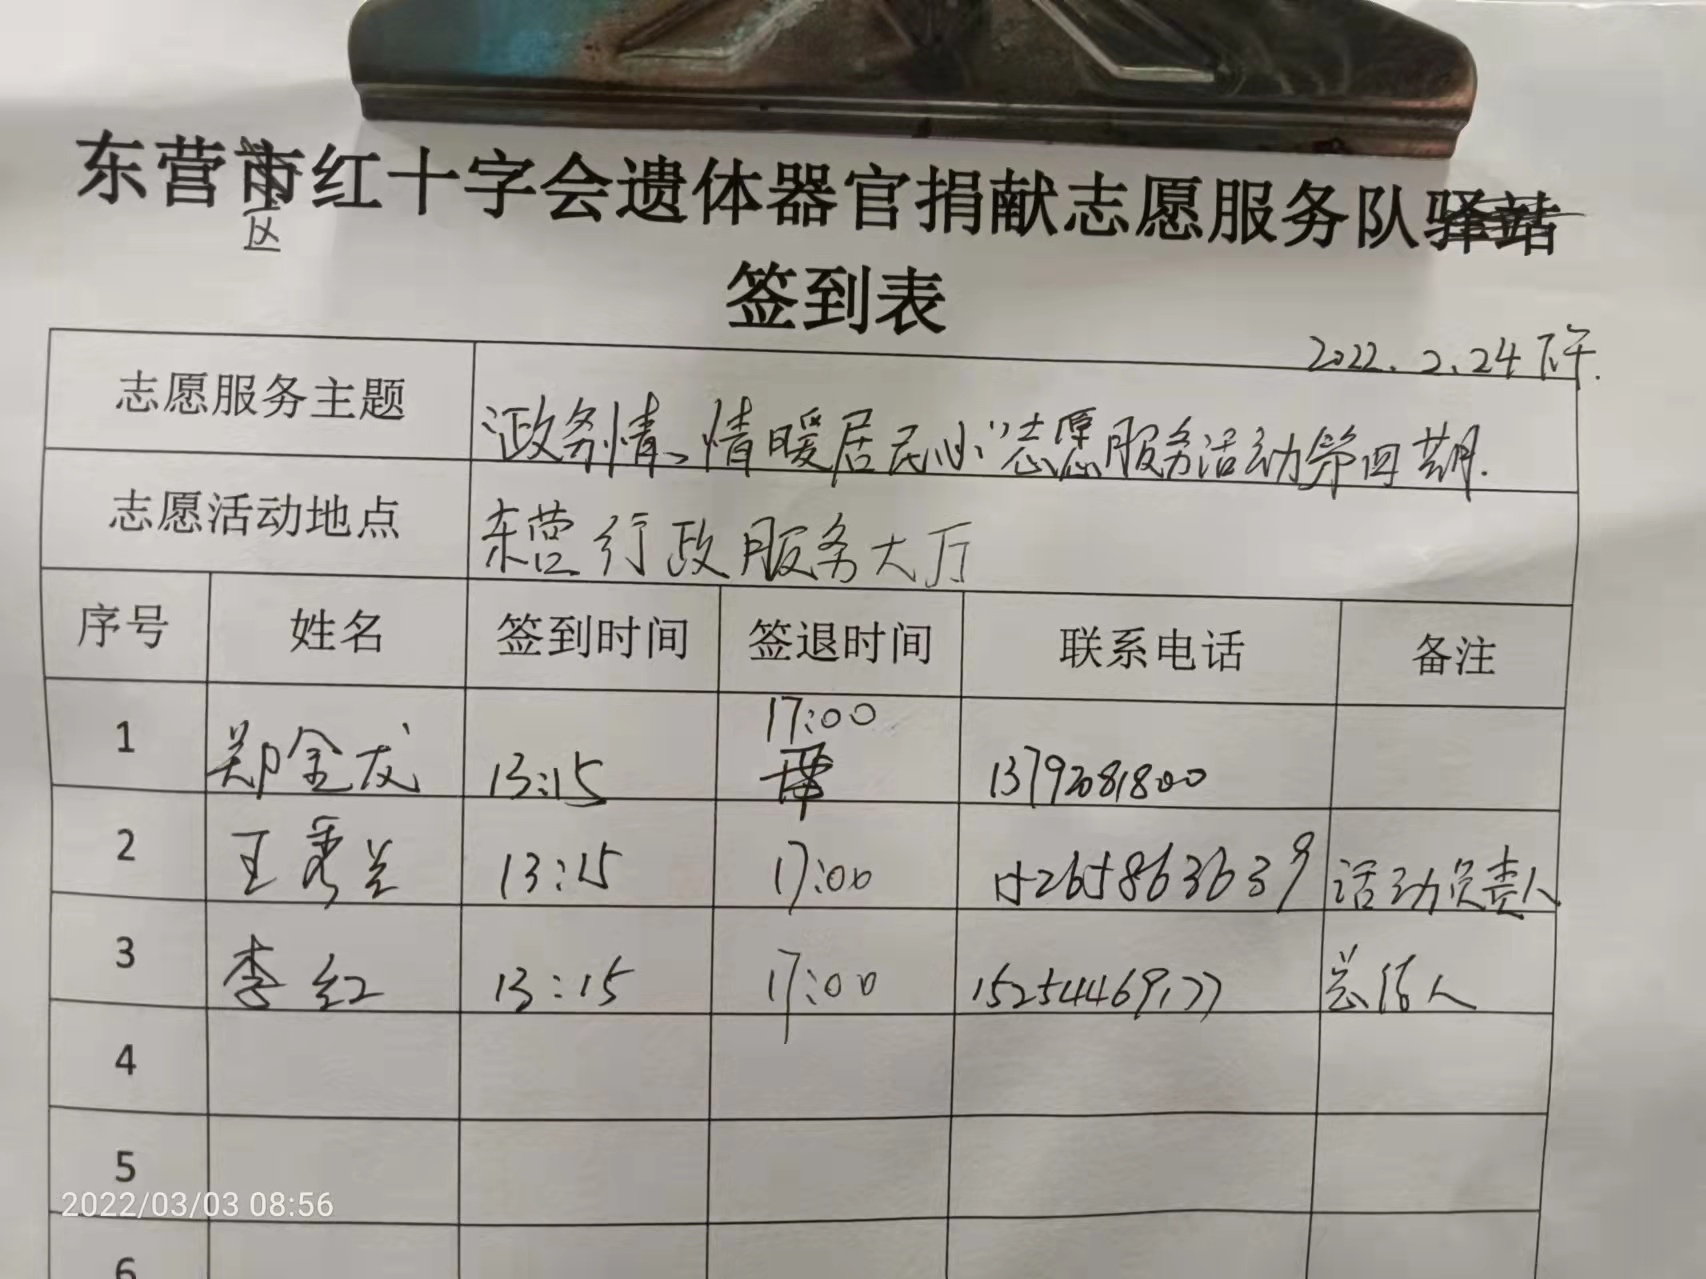 东营区红十字会遗体器官捐献志愿服务队
签到表
2022.2.24下午.
志愿服务主题 政务情、情暖居民心"志愿服务活动第四期.
志愿活动地点 东营行政服务大厅
序号 姓名 签到时间 签退时间 联系电话 备注
1 郑金龙 13:15 17:00 13792081800
2 王秀兰 13:15 17:00 15265863639 活动负责人
3 李红 13:15 17:00 15254469177 总结人
4
5
2022/03/03 08:56
6